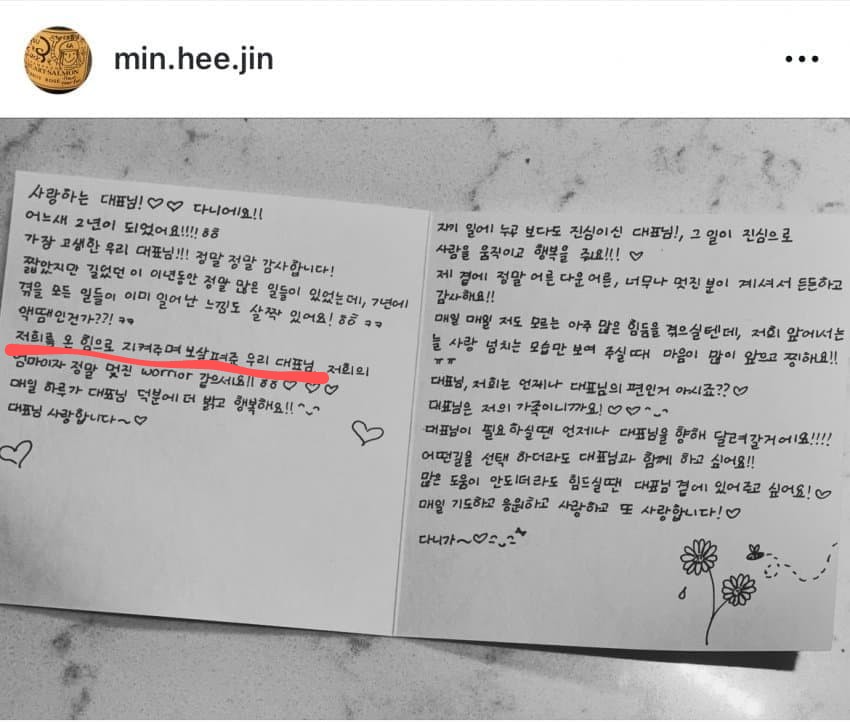 min.hee.jin
사랑하는 대표님!♡♡ 다니에요!!
어느새 2년이 되었어요!!!! ㅎㅎ
가장 고생한 우리 대표님!!! 정말 정말 감사합니다!
짧았지만 길었던 이 이년동안 정말 많은 일들이 있었는데, 7년에
겪을 모든 일들이 이미 일어난 느낌도 살짝 있어요! ㅎㅎ ㅋㅋ
액땜인건가??! ㅋㅋ
저희를 온 힘으로 지켜주며 보살펴준 우리 대표님 저희의
엄마이자 정말 멋진 worrior 같으세요!! ㅎㅎ♡♡♡
매일 하루가 대표님 덕분에 더 밝고 행복해요!! ^_^
대표님 사랑합니다~♡
자기 일에 누구 보다도 진심이신 대표님!, 그 일이 진심으로
사람을 움직이고 행복을 줘요!!! ♡
제 곁에 정말 어른 다운 어른, 너무나 멋진 분이 계셔서 든든하고
감사해요!!
매일 매일 저도 모르는 아주 많은 힘듦을 겪으실텐데, 저희 앞에서는
늘 사랑 넘치는 모습만 보여 주실때 마음이 많이 앞으고 찡해요!!
ㅠㅠ
대표님, 저희는 언제나 대표님의 편인거 아시죠??♡
대표님은 저의 가족이니까요! ♡♡^_^
대표님이 필요하실땐 언제나 대표님을 향해 달려갈거에요!!!!
어떤길을 선택 하더라도 대표님과 함께 하고 싶어요!!
많은 도움이 안되더라도 힘드실땐 대표님 곁에 있어주고 싶어요!♡
매일 기도하고 응원하고 사랑하고 또 사랑합니다!♡
다니가~♡